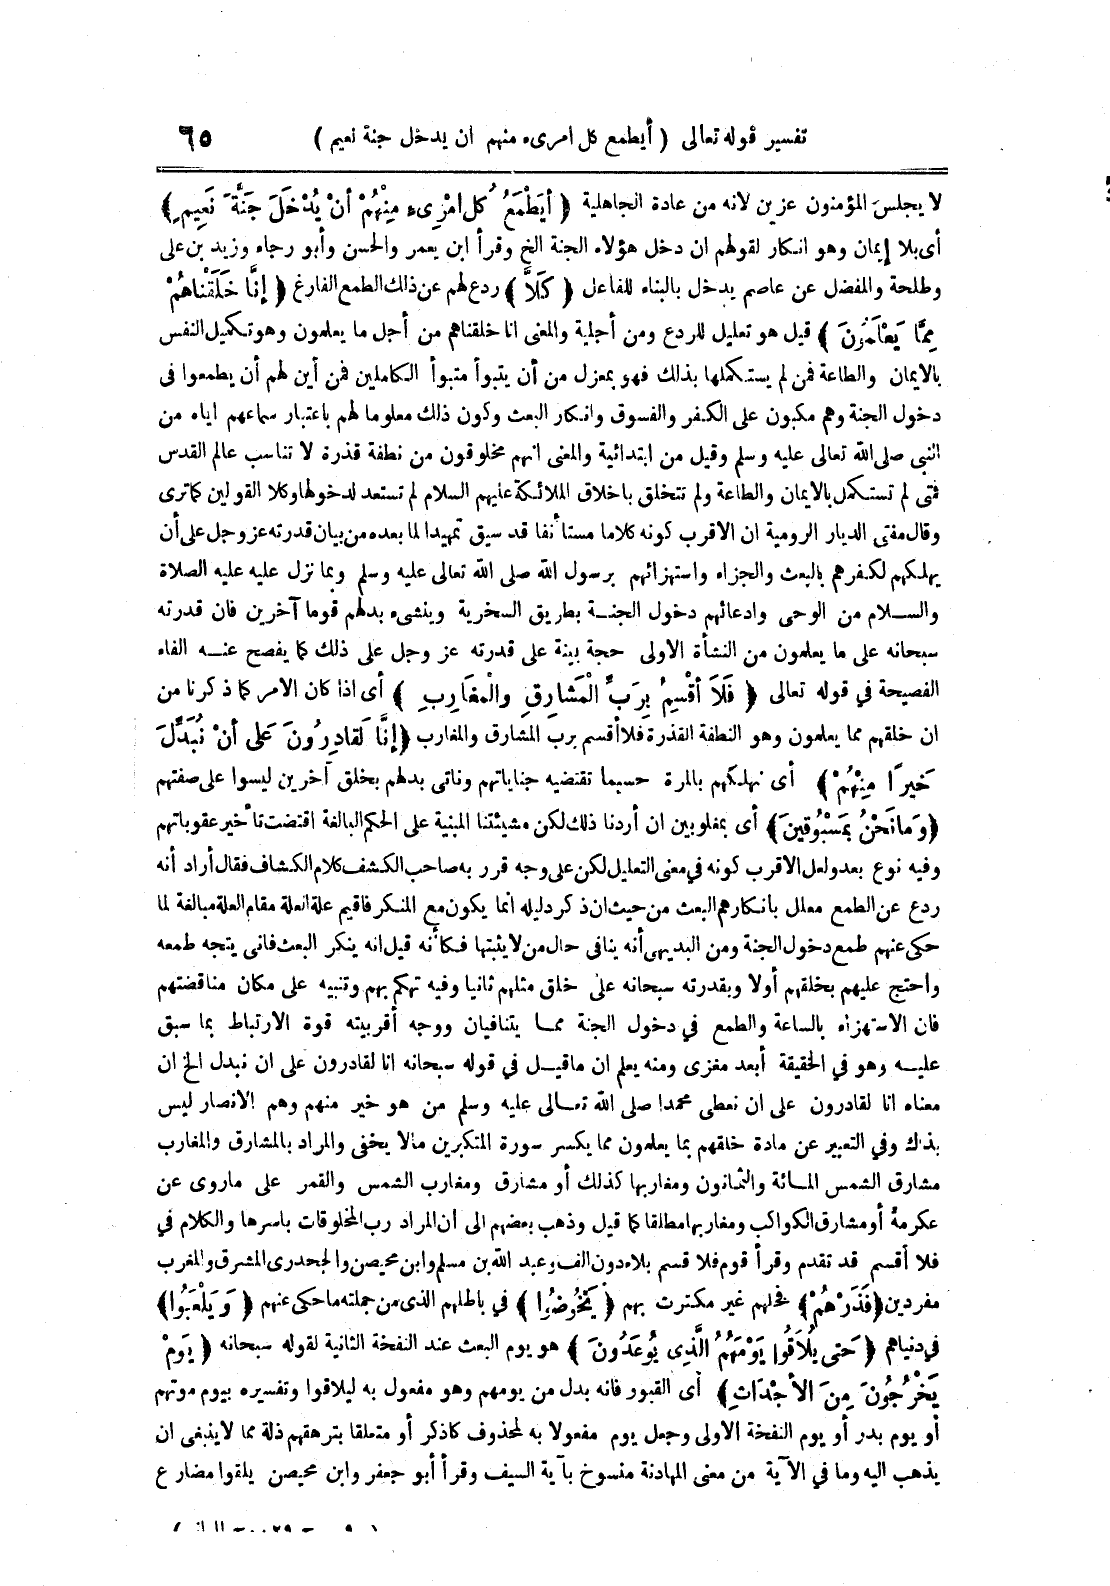 تفسير قوله تعالى ( أيطمع كل امرىء منهم ان يدخل جنة نعيم ) ٦٥
لا يجلس المؤمنون عزين لانه من عادة الجاهلية ( أَيَطْمَعُ كُل امْرِىء مِنْهُمْ أَنْ يُدْخَلَ جَنَّةَ نَعِيمٍ )
أى بلا إيمان وهو انكار لقولهم ان دخل هؤلاء الجنة الخ وقرأ ابن يعمر والحسن وأبو رجاء وزيد بن على
وطلحة والمفضل عن عاصم يدخل بالبناء للفاعل ( كَلاَّ ) ردع لهم عن ذلك الطمع الفارغ ( إنَّا خَلَقْنَاهُمْ
مِمَّا يَعْلَمُونَ ) قيل هو تعليل للردع ومن أجلية والمعنى انا خلقناهم من أجل ما يعلمون وهو تكميل النفس
بالايمان والطاعة فمن لم يستكملها بذلك فهو بمعزل من أن يتبوأ متبوأ الكاملين فمن أين لهم أن يطمعوا فى
دخول الجنة وهم مكبون على الكفر والفسوق وانكار البعث وكون ذلك معلوما لهم باعتبار سماعهم اياه من
النبى صلى الله تعالى عليه وسلم وقيل من ابتدائية والمعنى انهم مخلوقون من نطفة قذرة لا تناسب عالم القدس
فمتى لم تستكمل بالايمان والطاعة ولم تتخلق باخلاق الملائكة عليهم السلام لم تستعد لدخولها وكلا القولين كما ترى
وقال مفتى الديار الرومية ان الاقرب كونه كلاما مستأنفا قد سيق تمهيدا لما بعده من بيان قدرته عز وجل على أن
يهلكهم لكفرهم بالبعث والجزاء واستهزائهم برسول الله صلى الله تعالى عليه وسلم وبما نزل عليه عليه الصلاة
والسلام من الوحى وادعائهم دخول الجنة بطريق السخرية وينشىء بدلهم قوما آخرين فان قدرته
سبحانه على ما يعلمون من النشأة الاولى حجة بينة على قدرته عز وجل على ذلك كما يفصح عنه الفاء
الفصيحة في قوله تعالى ( فَلاَ أُقْسِمُ بِرَبِّ الْمَشَارِقِ وَالْمَغَارِبِ ) أى اذا كان الامر كما ذكرنا من
ان خلقهم مما يعلمون وهو النطفة القذرة فلا أقسم برب المشارق والمغارب ( إنَّا لَقَادِرُونَ عَلَى أَنْ نُبَدِّلَ
خَيْرًا مِنْهُمْ ) أى نهلكهم بالمرة حسبما تقتضيه جناياتهم وناتى بدلهم بخلق آخرين ليسوا على صفتهم
( وَمَا نَحْنُ بِمَسْبُوقِينَ ) أى بمغلوبين ان أردنا ذلك لكن مشيئتنا المبنية على الحكم البالغة اقتضت تأخير عقوباتهم
وفيه نوع بعد ولعل الاقرب كونه في معنى التعليل لكن على وجه قرر به صاحب الكشف كلام الكشاف فقال أراد أنه
ردع عن الطمع معلل بانكارهم البعث من حيث ان ذكر دليله انما يكون مع المنكر فاقيم علة العلة مقام العلة مبالغة لما
حكى عنهم طمع دخول الجنة ومن البديهى أنه ينافى حال من لا يثبتها فكأنه قيل انه ينكر البعث فانى يتجه طمعه
واحتج عليهم بخلقهم أولا وبقدرته سبحانه على خلق مثلهم ثانيا وفيه تهكم بهم وتنبيه على مكان مناقضتهم
فان الاستهزاء بالساعة والطمع في دخول الجنة مما يتنافيان ووجه أقربيته قوة الارتباط بما سبق
عليه وهو في الحقيقة أبعد مغزى ومنه يعلم ان ماقيل في قوله سبحانه انا لقادرون على ان نبدل الخ ان
معناه انا لقادرون على ان نعطى محمدا صلى الله تعالى عليه وسلم من هو خير منهم وهم الانصار ليس
بذاك وفي التعبير عن مادة خلقهم بما يعلمون مما يكسر سورة المتكبرين مالا يخفى والمراد بالمشارق والمغارب
مشارق الشمس المائة والثمانون ومغاربها كذلك أو مشارق ومغارب الشمس والقمر على ماروى عن
عكرمة أو مشارق الكواكب ومغاربها مطلقا كما قيل وذهب بعضهم الى أن المراد رب المخلوقات باسرها والكلام في
فلا أقسم قد تقدم وقرأ قوم فلا قسم بلا دون الف وعبد الله بن مسلم وابن محيصن والجحدرى المشرق والمغرب
مفردين ( فَذَرْهُمْ ) فخلهم غير مكترث بهم ( يَخُوضُوا ) في باطلهم الذى من جملته ماحكى عنهم ( وَيَلْعَبُوا )
في دنياهم ( حَتى يُلاَقُوا يَوْمَهُمُ الَّذِى يُوعَدُونَ ) هو يوم البعث عند النفخة الثانية لقوله سبحانه ( يَوْمَ
يَخْرُجُونَ مِنَ الأَجْدَاثِ ) أى القبور فانه بدل من يومهم وهو مفعول به ليلاقوا وتفسيره بيوم موتهم
أو يوم بدر أو يوم النفخة الاولى وجعل يوم مفعولا به لمحذوف كاذكر أو متعلقا بترهقهم ذلة مما لا ينبغى ان
يذهب اليه وما في الآية من معنى المهادنة منسوخ بآية السيف وقرأ أبو جعفر وابن محيصن يلقوا مضارع